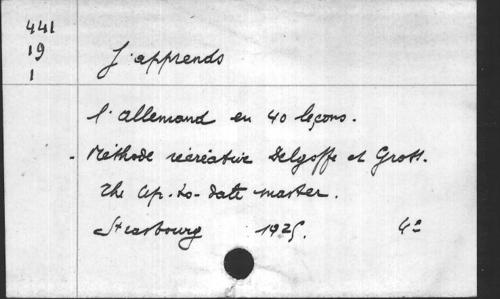 441
19
1
J'apprends
l'allemand en 40 leçons.
- Méthode récréative Delgoffe et Grott.
The Up-to-date master.
Strasbourg 1925. 4°